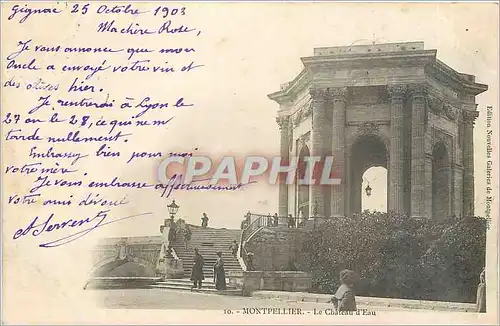 Gignac 25 Octobre 1903
Ma chère Rose,
Je vous annonce que mon
Oncle a envoyé votre vin et
des olives hier.
Je rentrerai à Lyon le
27 ou le 28, ce qui ne m
tarde nullement.
Embrassez bien pour moi
votre mère
Je vous embrasse affectueusement
Votre ami dévoué
A Servent
CPARAMA.COM
Edition Nouvelles Galeries de Montpellier
10. - MONTPELLIER. - Le Château d'Eau